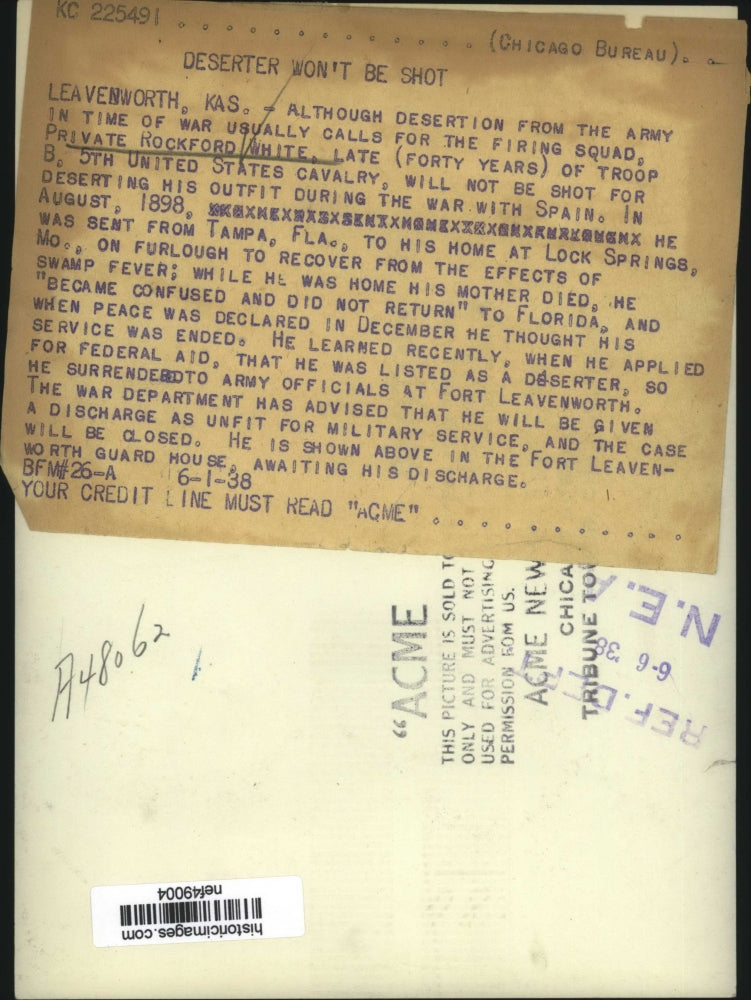 KC 225491 . . . . . . . . . . . . . . (CHICAGO BUREAU). .
DESERTER WON'T BE SHOT
LEAVENWORTH, KAS. - ALTHOUGH DESERTION FROM THE ARMY
IN TIME OF WAR USUALLY CALLS FOR THE FIRING SQUAD,
PRIVATE ROCKFORD WHITE, LATE (FORTY YEARS) OF TROOP
B, 5TH UNITED STATES CAVALRY, WILL NOT BE SHOT FOR
DESERTING HIS OUTFIT DURING THE WAR WITH SPAIN. IN
AUGUST, 1898, HE
WAS SENT FROM TAMPA, FLA., TO HIS HOME AT LOCK SPRINGS,
MO., ON FURLOUGH TO RECOVER FROM THE EFFECTS OF
SWAMP FEVER; WHILE HE WAS HOME HIS MOTHER DIED, HE
"BECAME CONFUSED AND DID NOT RETURN" TO FLORIDA, AND
WHEN PEACE WAS DECLARED IN DECEMBER HE THOUGHT HIS
SERVICE WAS ENDED. HE LEARNED RECENTLY, WHEN HE APPLIED
FOR FEDERAL AID, THAT HE WAS LISTED AS A DESERTER, SO
HE SURRENDEREDTO ARMY OFFICIALS AT FORT LEAVENWORTH.
THE WAR DEPARTMENT HAS ADVISED THAT HE WILL BE GIVEN
A DISCHARGE AS UNFIT FOR MILITARY SERVICE, AND THE CASE
WILL BE CLOSED. HE IS SHOWN ABOVE IN THE FORT LEAVEN-
WORTH GUARD HOUSE, AWAITING HIS DISCHARGE.
BFM#26-A 6-1-38
YOUR CREDIT LINE MUST READ "ACME" . . . . . . . . . . .
A48062
"ACME
THIS PICTURE IS SOLD TO
ONLY AND MUST NOT
USED FOR ADVERTISING
PERMISSION FOM US.
ACME NEW
CHICA
TRIBUNE TOW
N.E.A.
6-6 38
REF. DEPT
historicimages.com
nef49004